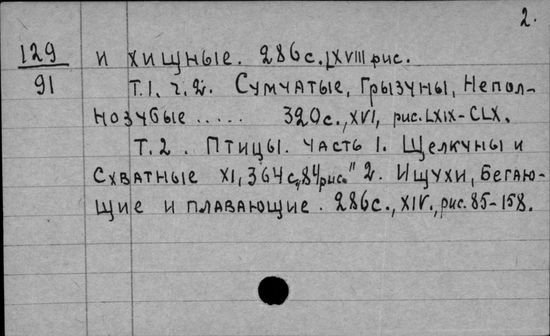 2.
129 и хищные. 286 с. LXVIII рис.
91 Т.1. ч.2. Сумчатые, Грызуны, Непол-
нозубые ..... 320 с., XVI, рис. LXIX-CLX.
Т.2. Птицы. часть 1. Щелкуны и
Схватные XI, 364 с., 84 рис." 2. Ищухи, Бегаю-
щие и плавающие. 286 с., XIV., рис. 85-158.